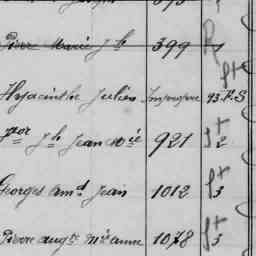 Pierre Marie Jh 399 R
Hyacinthe Julien Impropre 93.R.S
Jh Jean Mie 921 St 2
Georges Amd Jean 1012 St 3
Pierre augte Mie anne 1078 St 3